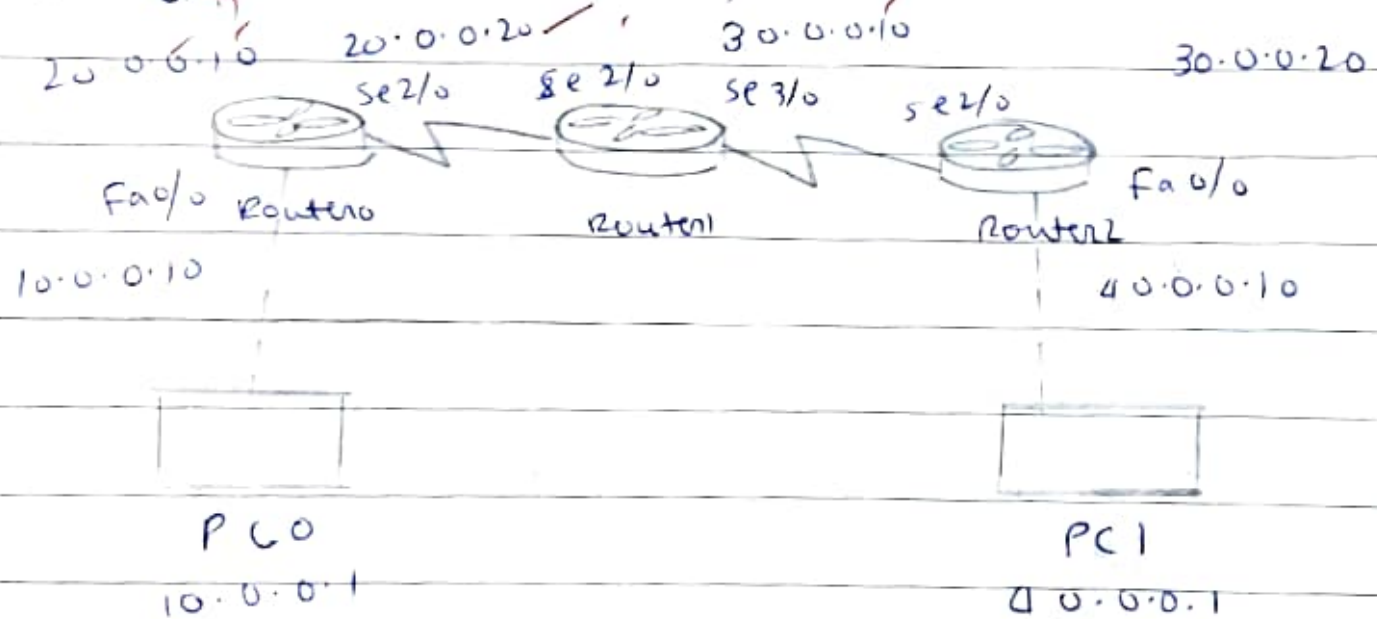 20.0.0.10 20.0.0.20 30.0.0.10 30.0.0.20
se2/0 se 2/0 se 3/0 se2/0
Fa0/0 Router0 Router1 Router2 Fa 0/0
10.0.0.10 40.0.0.10
PC0 PC1
10.0.0.1 40.0.0.1